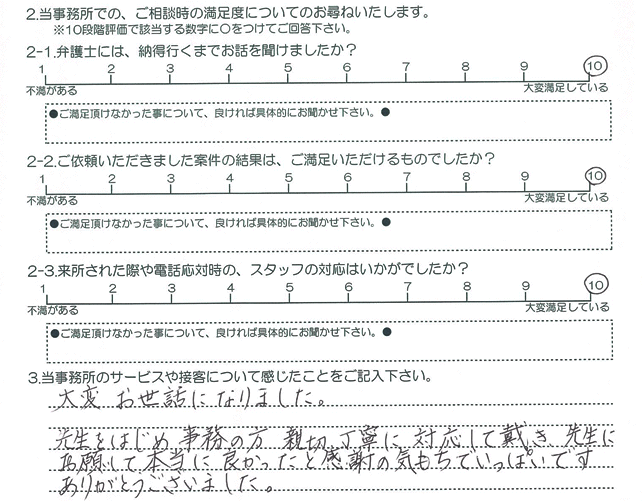 2.当事務所での、ご相談時の満足度についてのお尋ねいたします。
※10段階評価で該当する数字に○をつけてご回答下さい。
2-1.弁護士には、納得行くまでお話を聞けましたか？
1 2 3 4 5 6 7 8 9 10
不満がある 大変満足している
●ご満足頂けなかった事について、良ければ具体的にお聞かせ下さい。●
2-2.ご依頼いただきました案件の結果は、ご満足いただけるものでしたか？
1 2 3 4 5 6 7 8 9 10
不満がある 大変満足している
●ご満足頂けなかった事について、良ければ具体的にお聞かせ下さい。●
2-3.来所された際や電話応対時の、スタッフの対応はいかがでしたか？
1 2 3 4 5 6 7 8 9 10
不満がある 大変満足している
●ご満足頂けなかった事について、良ければ具体的にお聞かせ下さい。●
3.当事務所のサービスや接客について感じたことをご記入下さい。
大変 お世話になりました。
先生をはじめ 事務の方 親切 丁寧に 対応して戴き 先生に
お願して 本当に 良かったと感謝の気もちでいっぱいです
ありがとうございました。